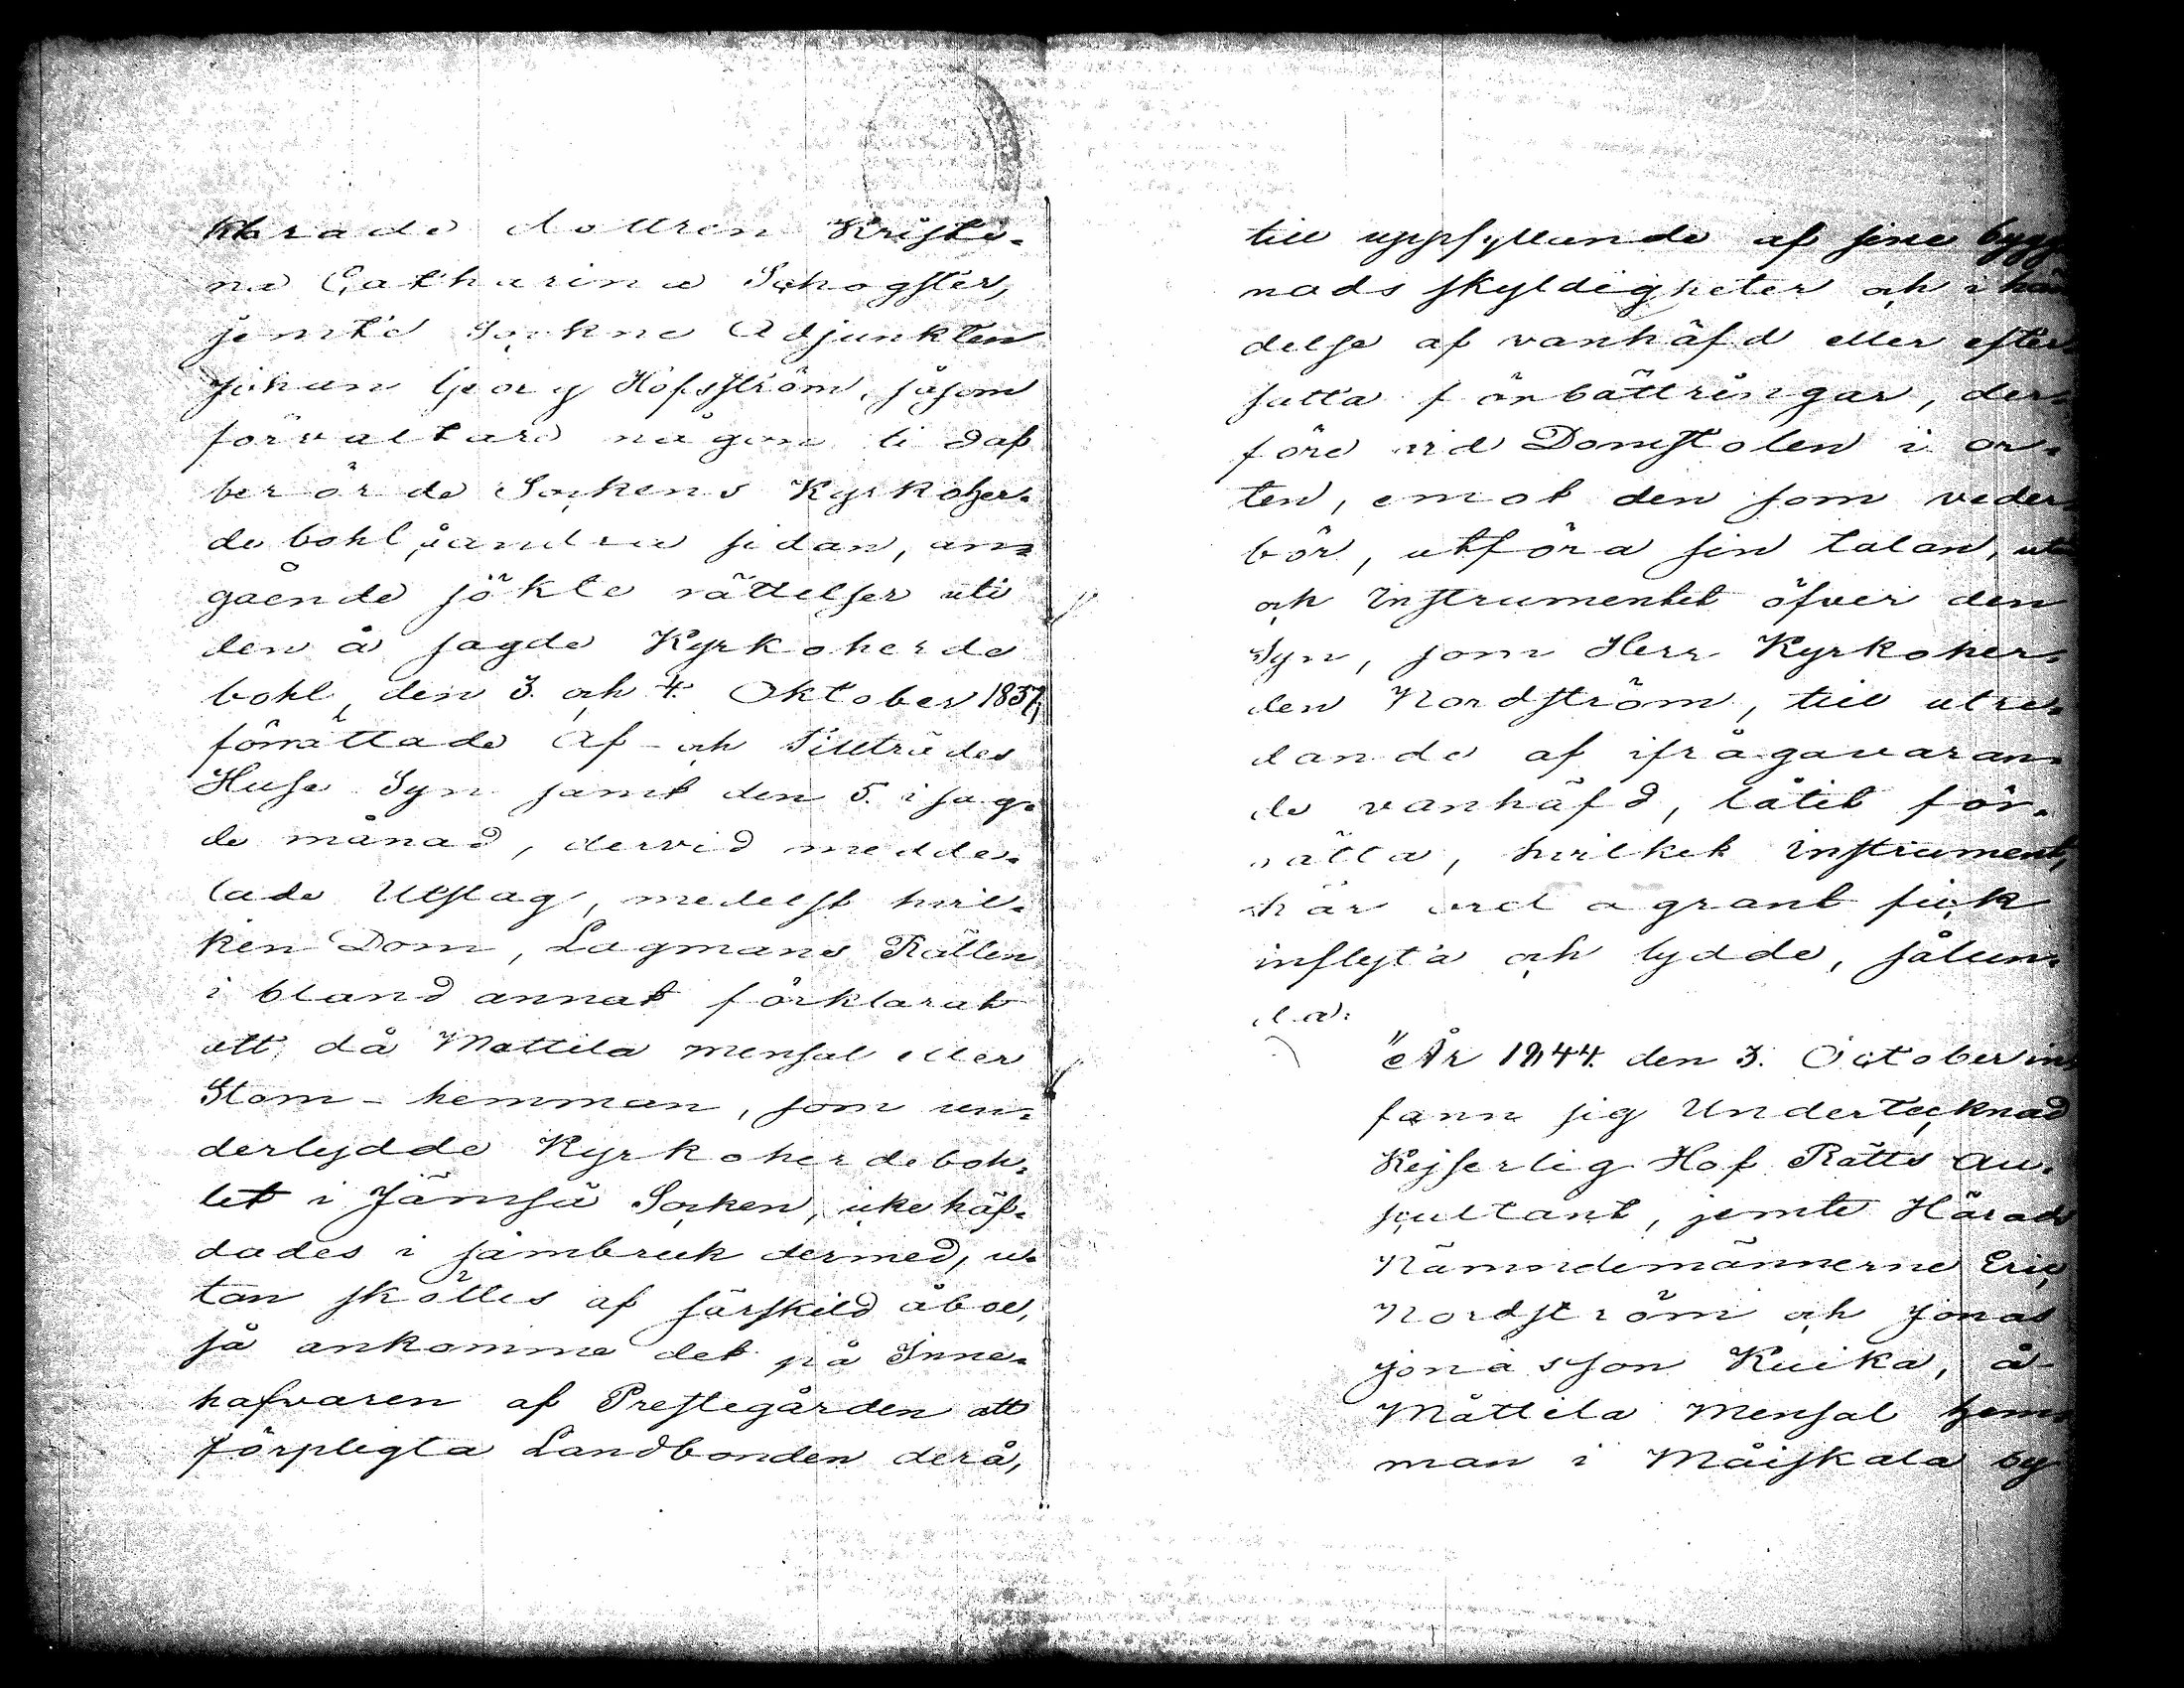 klarade dottren Kristi-
na Catharina Schogster,
jemte Sockne Adjunkten
Johan Georg Hofsström, såsom
förvaltare någon tid af
berörde Sockens Kyrkoher-
debohl, å andra sidan, an-
gående sökte rättelser uti
den å sagde Kyrkoherde
bohl, den 3. och 4. Oktober 1837,
förrättade Af- och Tillträdes
Huse Syn samt den 5. i sag-
de månad, dervid medde-
lade Utslag, medelst hvil-
ken Dom, Lagmans Rätten
i bland annat förklarat
att, då Mattila mensal eller
Stom-hemman, som un-
derlydde Kyrkoherdeboh-
let i Jämsä Socken, icke häf-
dades i sambruk dermed, u-
tan sköttes af särskild åboe,
så ankomme det på Inne-
hafvaren af Prestegården att
förpligta Landbonden derå,
till uppfyllande af sine bygg
nads skyldigheter och i hän
delse af vanhäfd eller efter-
satta förbättringar, der-
före vid Domstolen i or-
ten, emot den som veder-
bör, utföra sin talan,
och Instrumentet öfver den
Syn, som Herr Kyrkoher-
den Nordström, till utre-
dande af ifrågavaran-
de vanhäfd, låtit för-
rätta, hvilket instrument,
här ord a grant fick
inflyta och lydde, sålun-
da:
"År 1844. den 3. October in-
fann sig Undertecknad
Kejserlig Hof Rätts Au-
scultant, jemte Härads
Nämndemännerne Eric
Nordström och Jonas
Jonasson Kuika, å
Mattila Mensal hem-
man i Måiskala by